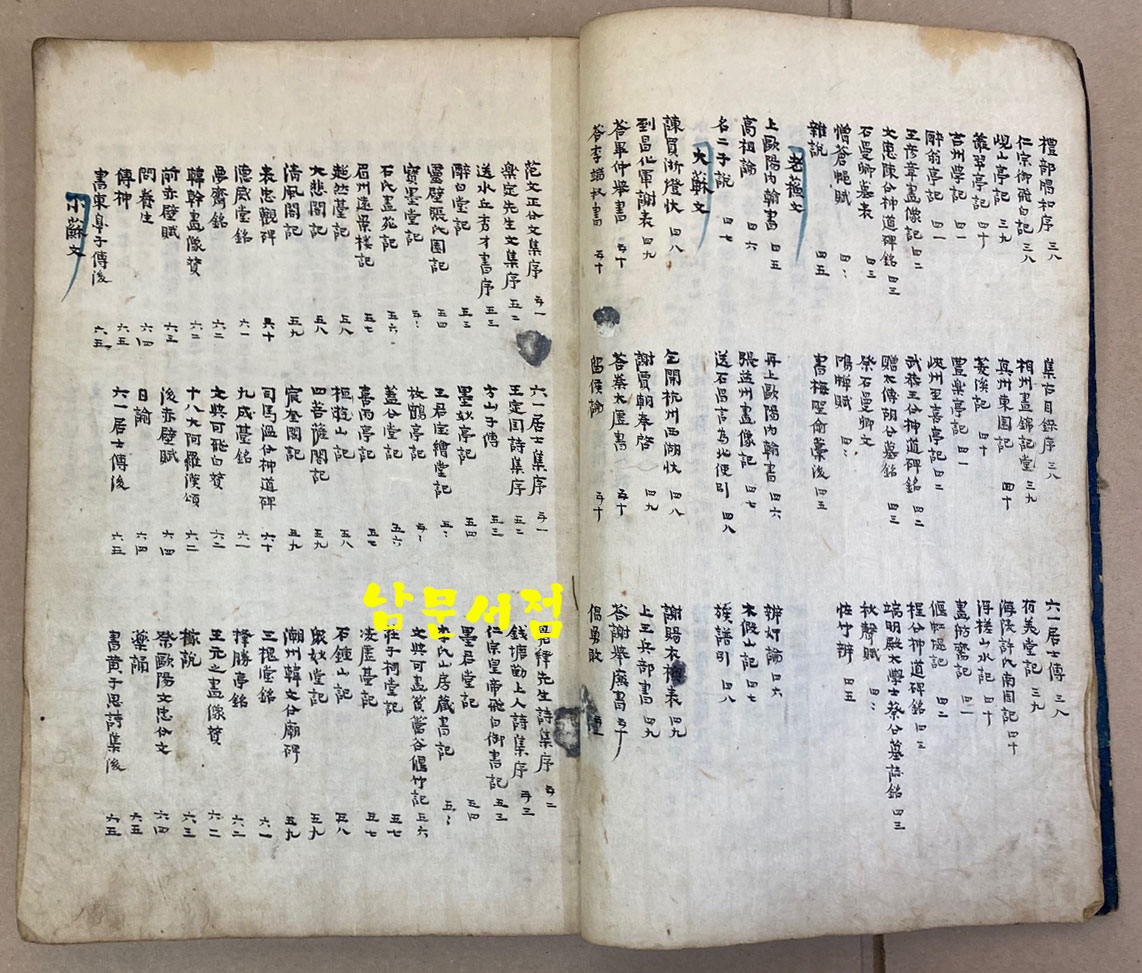 禮部唱和序 三八 集古目錄序 三八 六一居士傳 三八
仁宗御飛白記 三八 相州晝錦記堂 三九 有美堂記 三九
峴山亭記 三九 真州東園記 四十 海陵許氏南園記 四十
叢翠亭記 四十 養漁記 四十 浮槎山水記 四十
吉州學記 四一 豐樂亭記 四一 畫舫齋記
醉翁亭記 四一 峽州至喜亭記 偃虹隄記
王彦章畫像記 武恭王公神道碑銘 程公神道碑銘
公神道碑銘 四三 贈太傅胡公墓銘 四三 端明殿大學士蔡公墓誌銘 四三
石曼卿墓表 四三 祭石曼卿文 秋聲賦
憎蒼蠅賦 鳴蟬賦 怪竹辨 四五
雜說 四五 書梅聖俞藁後 四五
老蘇文
上歐陽內翰書 四五 再上歐陽內翰書 四六 辨奸論 四六
高祖論 四六 張益州畫像記 四七 木假山記 四七
名二子說 四七 送石昌言爲北使引 四八 族譜引 四八
大蘇文
諫買浙燈狀 四八 乞開杭州西湖狀 四八 謝賜衣襖表 四九
到昌化軍謝表 四九 謝賈朝奉啓 四九 上王兵部書 四九
答畢仲擧書 五十 答秦太虛書 五十 答謝擧廉書 五十
答李端叔書 五十 留侯論 倡勇敢
范文正公文集序 五一 六一居士集序 五一 鳧繹先生詩集序 五二
樂全先生文集序 五二 王定國詩集序 五二 錢塘勤上人詩集序 五三
送水丘秀才書序 五三 方山子傳 五三 仁宗皇帝飛白御書記 五三
醉白堂記 五三 墨妙亭記 五四 墨君堂記 五四
靈壁張氏園記 五四 王君寶繪堂記 李氏山房藏書記
寶墨堂記 放鶴亭記 文與可畫篔簹谷偃竹記 五六
石氏畫苑記 五六 蓋公堂記 五六 莊子祠堂記 五七
眉州遠景樓記 五七 喜雨亭記 五七 凌虛臺記 五七
超然臺記 五八 石鍾山記 五八
大悲閣記 五八 四菩薩閣記 五九 衆妙堂記 五九
淸風閣記 五九 宸奎閣記 五九 潮州韓文公廟碑 五九
表忠觀碑 六十 司馬溫公神道碑 六十 三槐堂銘 六一
德威堂銘 六一 九成臺銘 六一 擇勝亭銘 六二
夢齋銘 六二 文與可飛白贊 六二 王元之畫像贊 六二
韓幹畫像贊 六三 十八大阿羅漢頌 六三 稼說 六三
前赤壁賦 六三 後赤壁賦 六四 祭歐陽文忠公文 六四
問養生 六四 日諭 六四 藥誦 六五
傳神 六五 六一居士傳後 六五 書黃子思詩集後 六五
書東皐子傳後 六五
小蘇文
남문서점